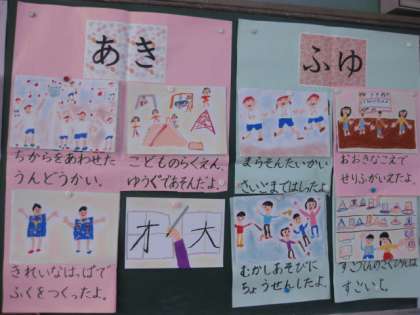 あき
ちからをあわせた
うんどうかい。
こどものらくえん。
ゆうぐであそんだよ。
きれいなはっぱで
ふくをつくったよ。
オ大
ふゆ
まらそんたいかい
さいごまではしったよ
おおきなこえで
せりふがいえたよ。
むかしあそびに
ちょうせんしたよ。
すごい